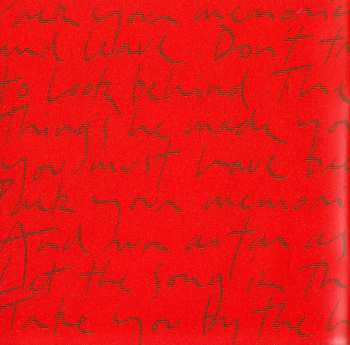 your memorie
and leave Don't t
to look behind The
Things he made yo
you must leave be
Pack your memori
And run as far as
Let the song in th
Take you by the h